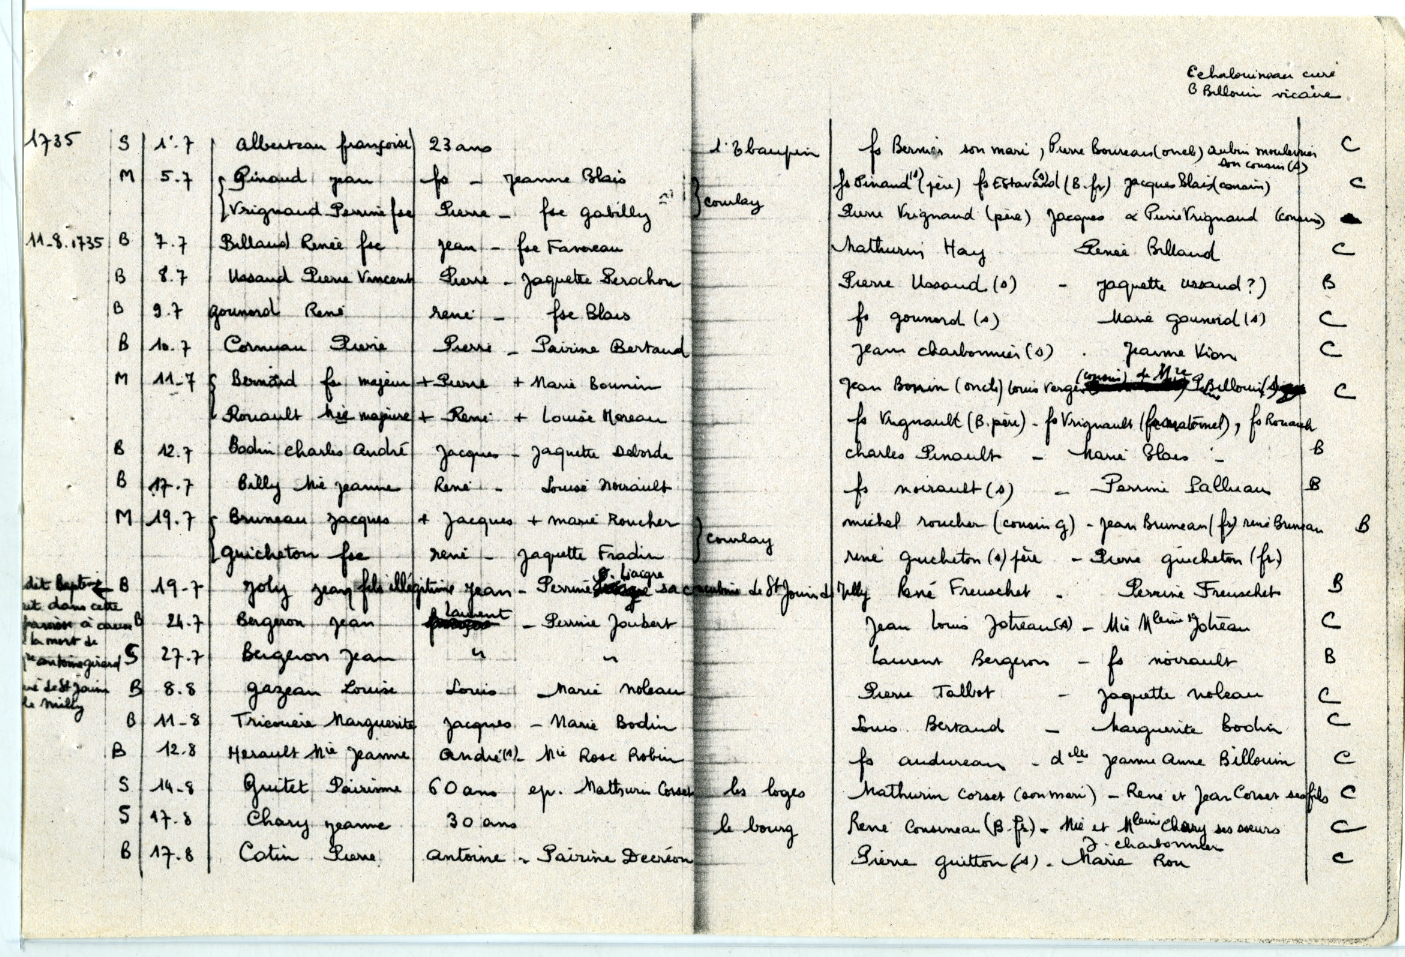 Echalouineau curé
B Billouin vicaire
1735 S 1er.7 Alberteau françoise 23 ans l'Ebaupin fs Bernier son mari, Pierre Boureau (oncl) aubin moulernier son cousin (s) C
M 5.7 Pinaud Jean fs - Jeanne Blais fs Pinaud (s) (père) fs Estavard (s) (B.fr) Jacques Blais (cousin) C
Vrignaud Perrine fse Pierre - fse gabilly coulay Pierre Vrignaud (père) Jacques & Pierre Vrignaud (cousins)
11-8.1735 B 7.7 Billaud Renée fse Jean - fse Favreau Mathurin Hay Renée Billaud C
B 8.7 Ussaud Pierre Vincent Pierre - Jaquette Perochon Pierre Ussaud (s) - Jaquette Ussaud ?) B
B 9.7 gounord René rené - fse Blais fs gounord (s) Marie gounord (s) C
B 10.7 Corneau Pierre Pierre - Pairine Bertaud Jean charbonnier (s) . Jeanne Vion C
M 11-7 Bernard fs majeur + Pierre + Marie Bounin Jean Bonnin (oncle) Louis verger (cousin) de Mie P Billouin C
Rouault Mie majeure + René + Louise Moreau fs Vrignault (B.père) - fs Vrignault, fs Rouault
B 12.7 Bodin charles André Jacques - Jaquette Deborde charles Pinault - Marie Blais - B
B 17.7 Billy Mie Jeanne René - Louise Noirault fs noirault (s) - Perrine Lalluau B
M 19.7 Bruneau Jacques + Jacques + marie Roucher michel roucher (cousin g) - Jean Bruneau (fr) rené Bruneau B
guicheton fse rené - Jaquette Fradin coulay rené guicheton (s) père - Pierre guicheton (fr)
dit bapt B 19-7 Joly Jean fils illégitime Jean - Perrine Liaigre sa concubine de St Jouin de Milly René Freuschet - Perrine Freuschet B
et dans cette
paroisse à cause B 24.7 Bergeron Jean Laurent - Perrine Joubert Jean Louis Jotreau (s) - Mie Mleine Jotreau C
la mort de
antoine girard S 27.7 Bergeron Jean " " Laurent Bergeron - fs noirault B
curé de St Jouin B 8.8 gazeau Louise Louis - Marie Noleau Pierre Talbot - Jaquette Noleau C
de Milly
B 11-8 Tricouère Marguerite Jacques - Marie Bodin Louis Bertaud - Marguerite Bodin C
B 12.8 Herault Mie Jeanne André (s) - Mie Rose Robin fs audureau - delle Jeanne Anne Billouin C
S 14-8 Quitet Pairinne 60 ans ep. Mathurin Corset les loges Mathurin corset (son mari) - René et Jean Corset ses fils C
S 17.8 Chary Jeanne 30 ans le bourg René Cousineau (B.fr) - Mie et Mleine Chary ses soeurs C
B 17.8 Cotin Pierre Antoine - Pairine Decréon Pierre guitton (s) - J. charbonnier Marie Rou C